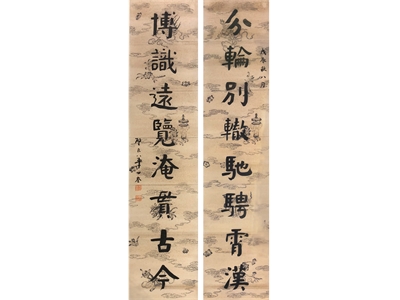 分輪別轍馳騁霄漢
博識遠覽淹貫古今